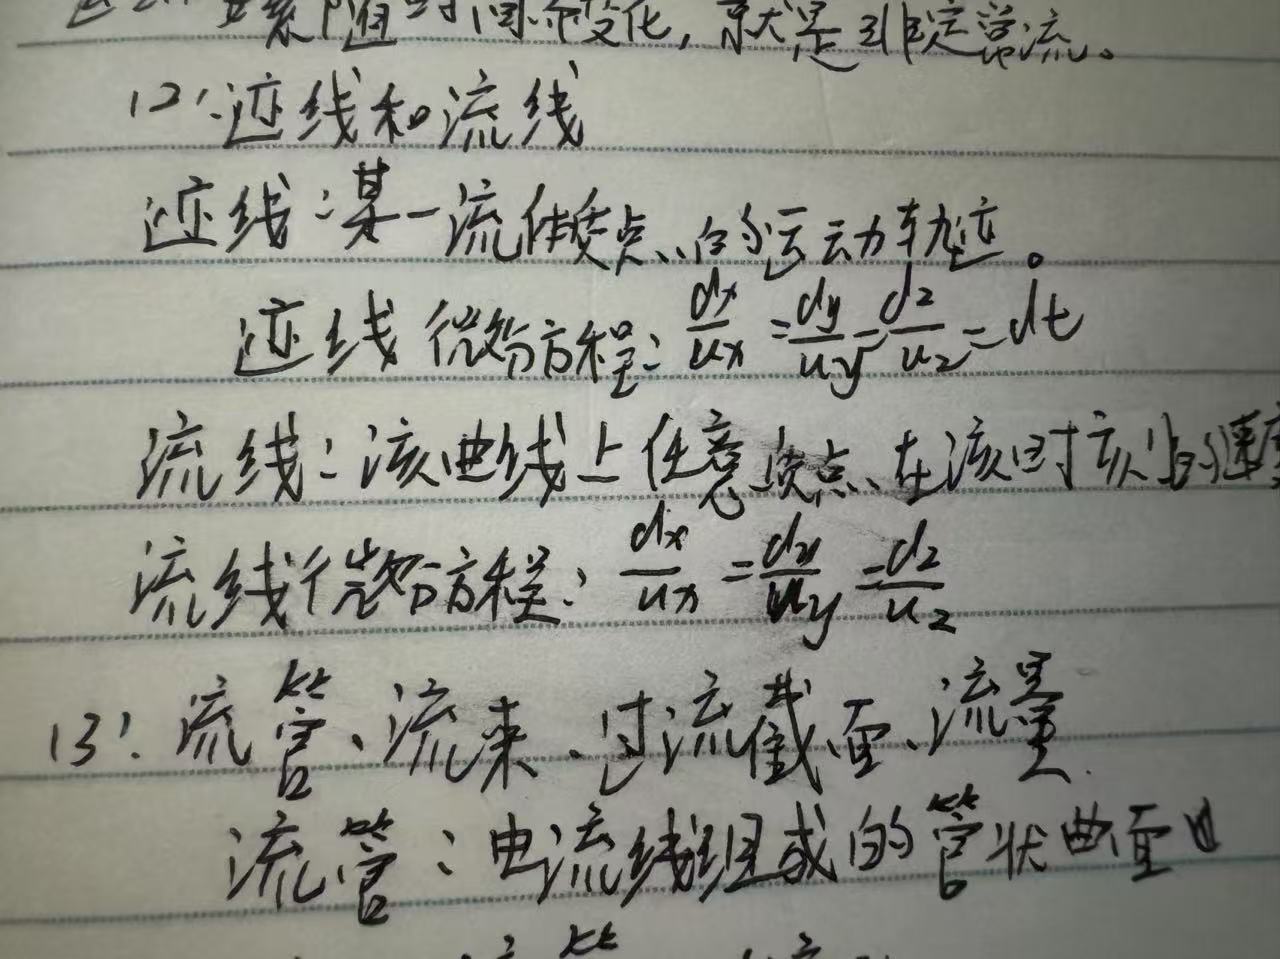 要素随时间而变化,就是非定常流。
12'. 迹线和流线
迹线:某一流体质点的运动轨迹。
迹线微分方程: dx/ux = dy/uy = dz/uz = dt
流线:该曲线上任意质点在该时刻的速度
流线微分方程: dx/ux = dy/uy = dz/uz
13'. 流管、流束、过流截面、流量
流管:由流线组成的管状曲面